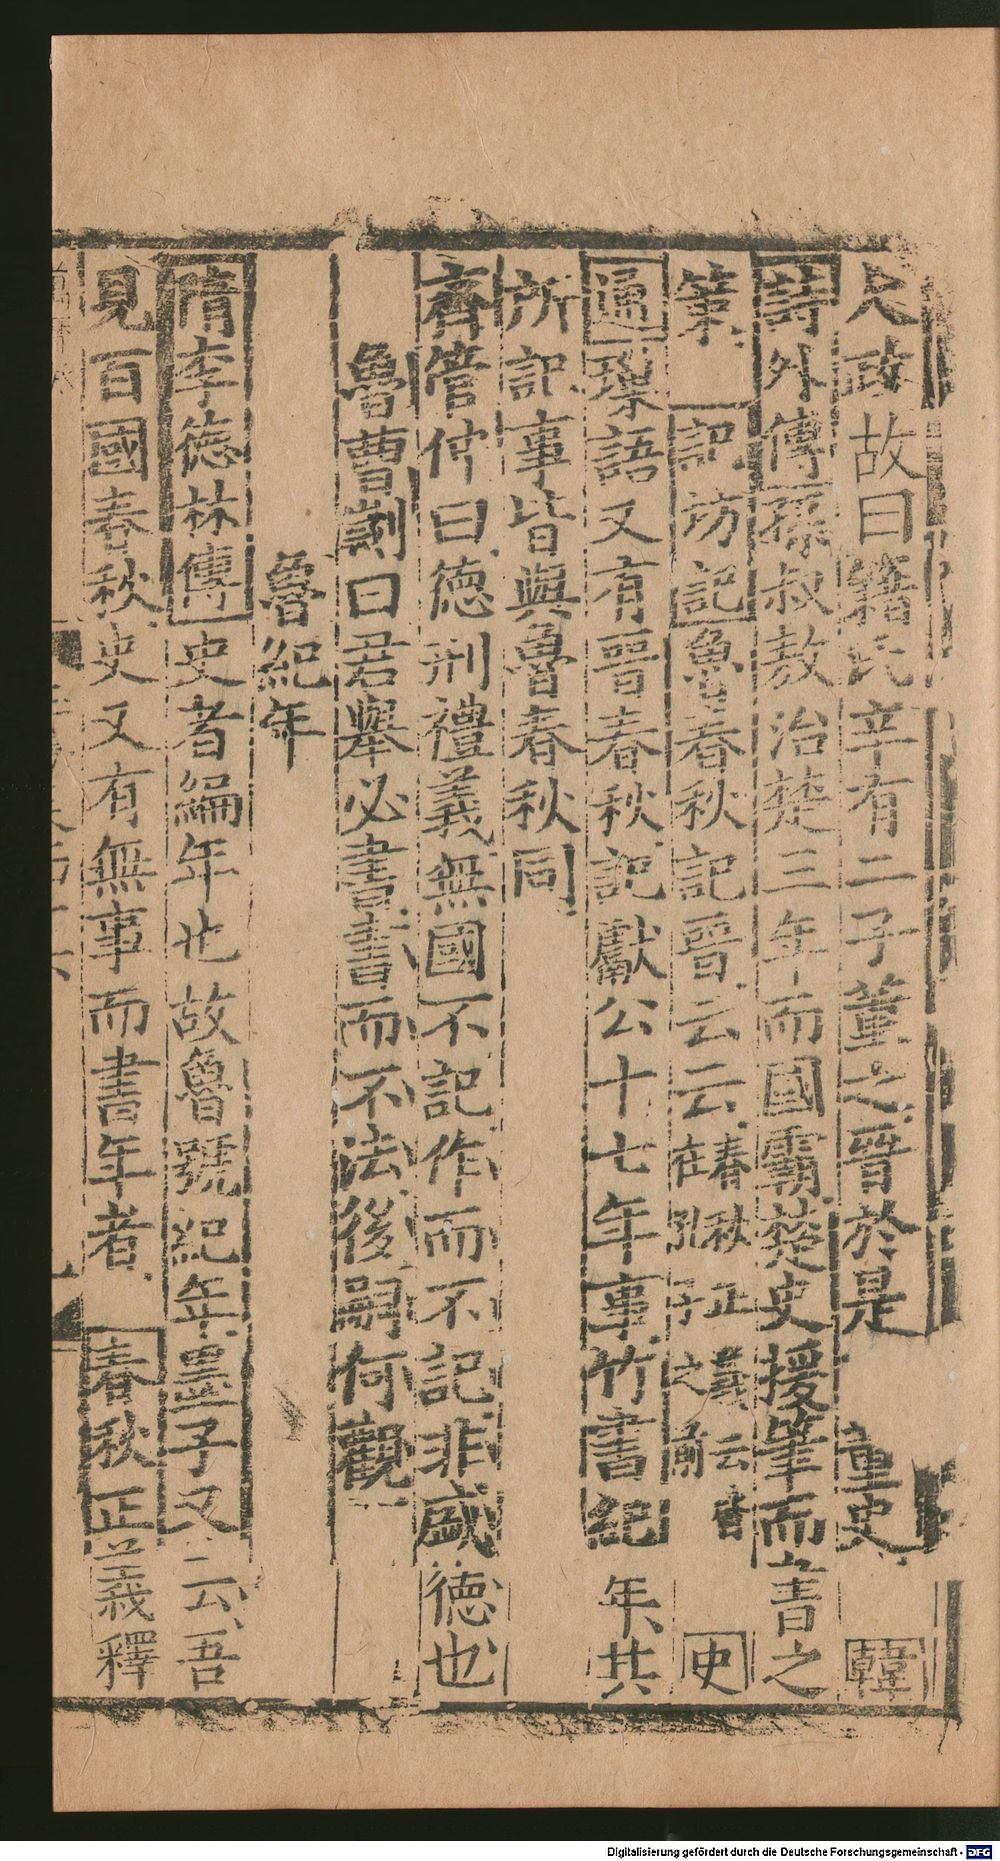 大政故曰籍氏辛有二子董之晉於是 董史 韓
詩外傳孫叔敖治楚三年而國霸楚史援筆而書之
策 記坊記魯春秋記晉云云春秋正義云書在孔子之前 史
通璅語又有晉春秋記獻公十七年事竹書紀年共
所記事皆與魯春秋同
齊管仲曰德刑禮義無國不記作而不記非盛德也
魯曹劌曰君舉必書書而不法後嗣何觀
魯紀年
隋李德林傳史者編年也故魯號紀年墨子又云吾
見百國春秋史又有無事而書年者 春秋正義釋
Digitalisierung gefördert durch die Deutsche Forschungsgemeinschaft - DFG